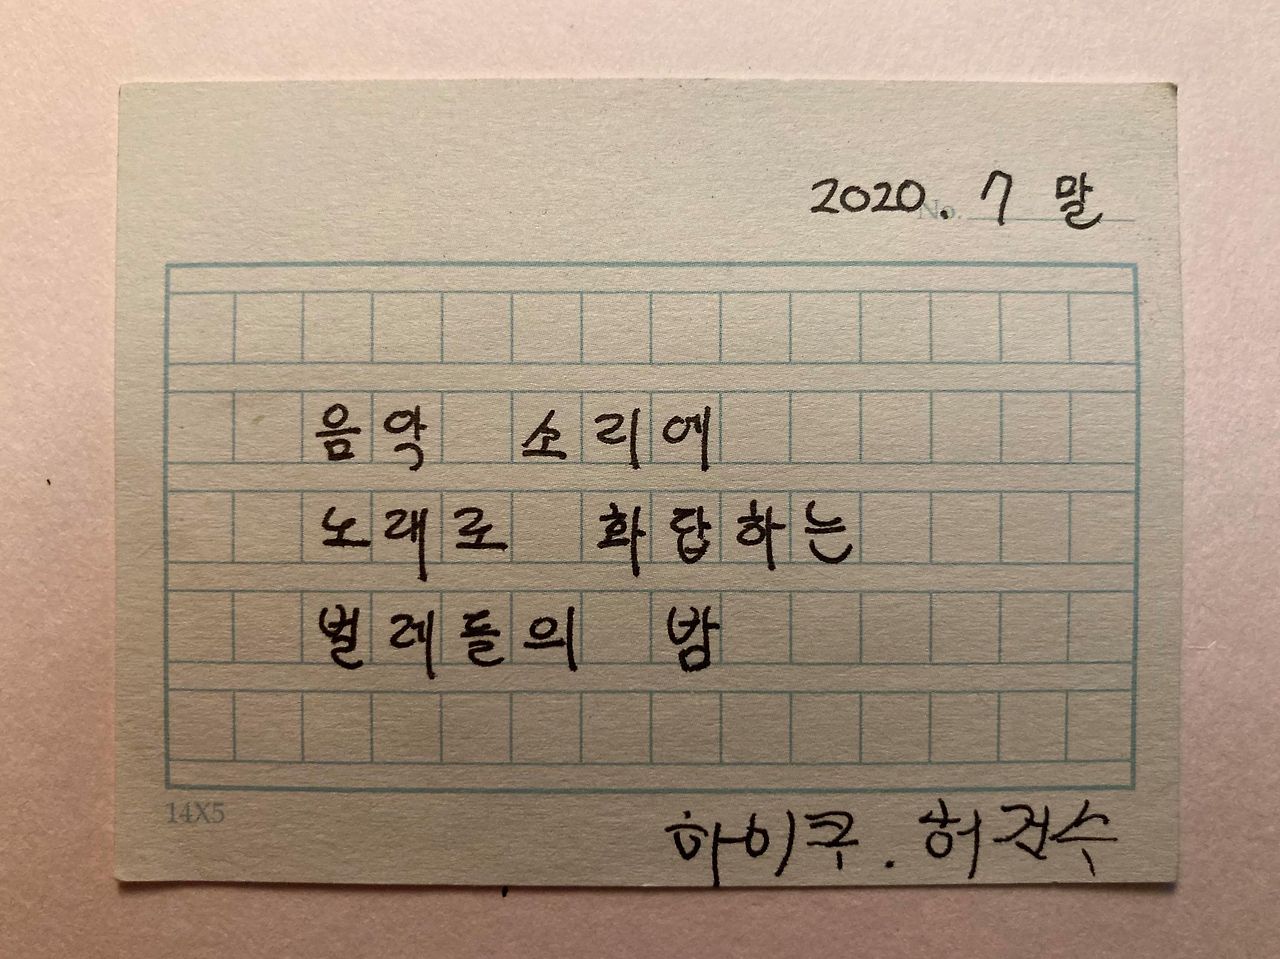 2020. 7 말
No.
음악 소리에
노래로 화답하는
벌레들의 밤
14X5
하이쿠. 허건수